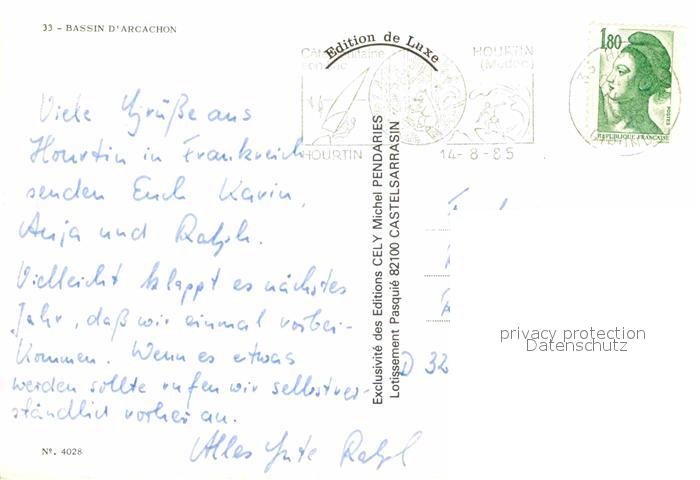 33 - BASSIN D'ARCACHON
Edition de Luxe
HOURTIN
(Médoc)
HOURTIN
14-8-85
1,80
POSTES
REPUBLIQUE FRANÇAISE
Viele Grüße aus
Hourtin in Frankreich
senden Euch Karin,
Anja und Ralph.
Vielleicht klappt es nächstes
Jahr, daß wir einmal vorbei-
kommen. Wenn es etwas
werden sollte rufen wir selbstver-
ständlich vorher an.
Alles Gute Ralph
Exclusivité des Editions CELY Michel PENDARIES
Lotissement Pasquié 82100 CASTELSARRASIN
D 32
privacy protection
Datenschutz
Nº. 4028